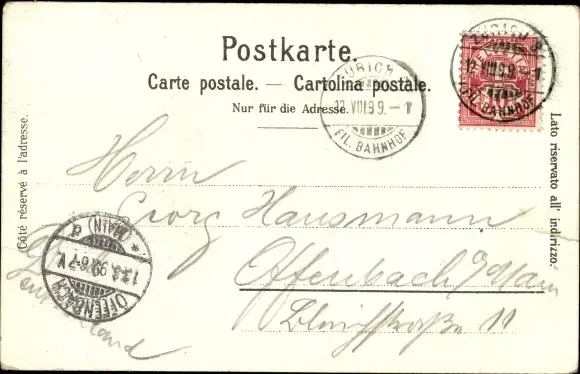 Postkarte.
Carte postale. — Cartolina postale.
Nur für die Adresse.
Côté réservé à l'adresse.
Lato riservato all' indirizzo.
ZÜRICH
12.VIII.99.—
FIL. BAHNHOF
ZÜRICH
12.VIII.99.—
FIL. BAHNHOF
10
Herrn
Georg Hausmann
Offenbach a/Main
11
Deutschland
OFFENBACH
(MAIN)
13.8.99.6-7V.